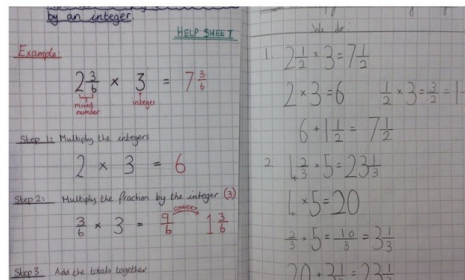 by an integer
HELP SHEET
Example:
2 3/6 × 3 = 7 3/6
mixed number
integer
Step 1: Multiply the integers
2 × 3 = 6
Step 2: Multiply the fraction by the integer (3)
3/6 × 3 = 9/6 1 3/6
Step 3: Add the totals together
We do
1. 2 1/2 × 3 = 7 1/2
2 × 3 = 6 1/2 × 3 = 3/2 = 1
6 + 1 1/2 = 7 1/2
2. 4 2/3 × 5 = 23 1/3
4 × 5 = 20
2/3 × 5 = 10/3 = 3 1/3
20 + 3 1/3 = 23 1/3